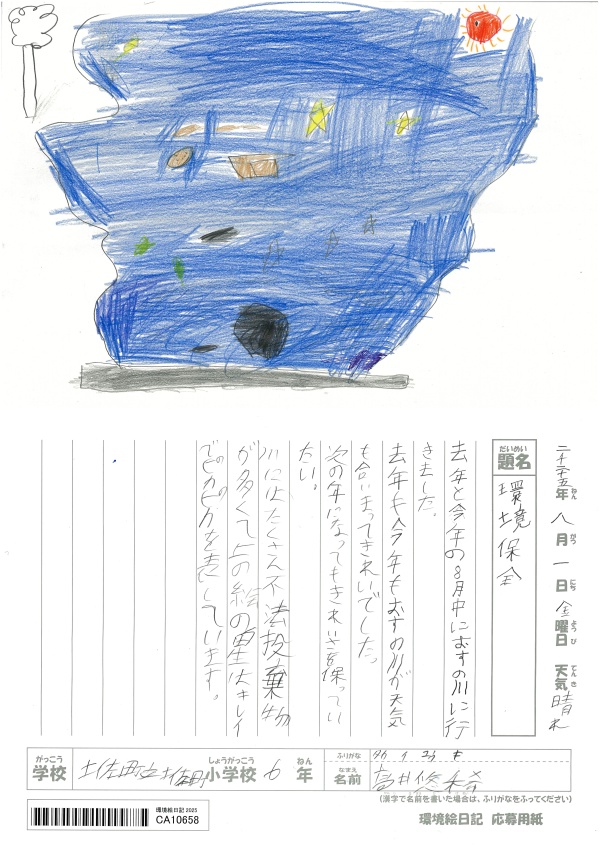 二十二五年 八月 一日 金曜日 天気 晴れ
ねん がつ にち ようび てんき
だいめい
題名 環境保全
去年と今年の8月中にむすの川に行
きました。
去年も今年もむすの川が天気
も合いまってきれいでした。
次の年になってもきれいさを保ってい
たい。
川にはたくさん不法投棄物
が多くて上の絵の星はキレイ
でピカピカを表しています。
の
がっこう
学校 土佐町立土佐町
しょうがっこう
小学校 6
ねん
年
ふりがな
なまえ
名前 高井悠希
(漢字で名前を書いた場合は、ふりがなをふってください)
環境絵日記 2025
CA10658
環境絵日記 応募用紙